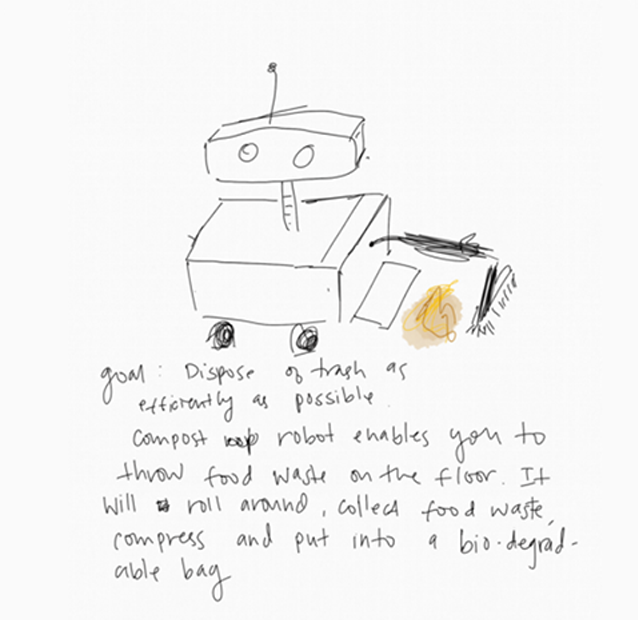 goal: Dispose of trash as
efficiently as possible.
Compost robot enables you to
throw food waste on the floor. It
will roll around, collect food waste,
compress and put into a bio-degrad-
able bag